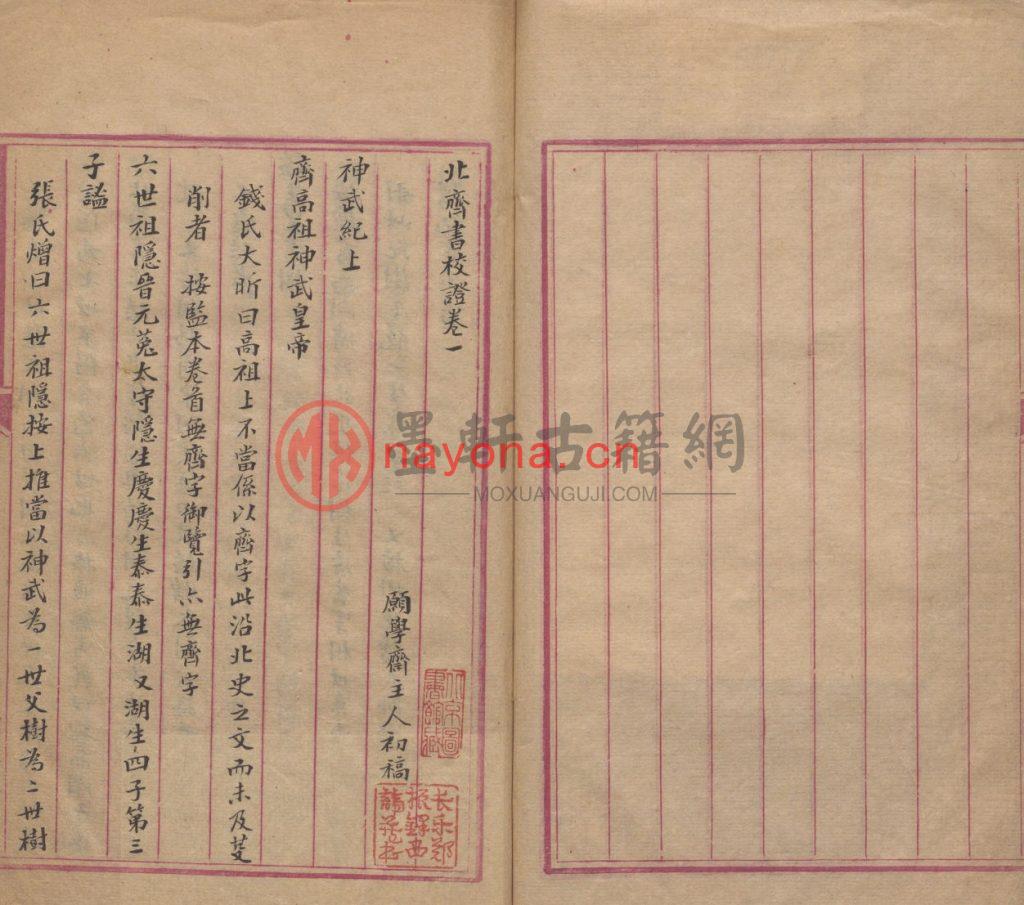 北齊書校證卷一
願學齋主人初稿
神武紀上
齊高祖神武皇帝
錢氏大昕曰高祖上不當係以齊字此沿北史之文而未及芟
削者 按監本卷首無齊字御覽引亦無齊字
六世祖隱晉元菟太守隱生慶慶生泰泰生湖又湖生四子第三
子謐
張氏熷曰六世祖隱按上推當以神武為一世父樹為二世樹
北京圖
書館藏
长乐郑
振铎西
諦藏书
墨軒古籍網
nayona.cn
MOXUANGUJI.COM